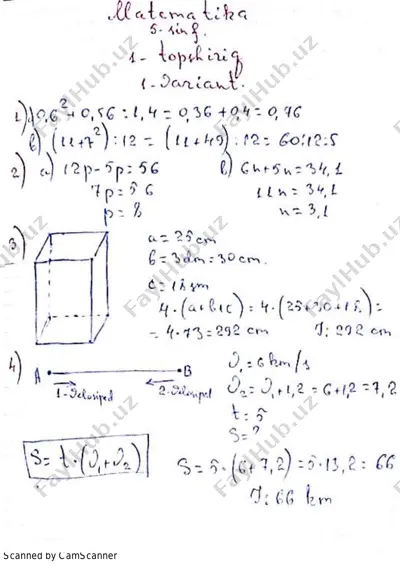 Matematika
5-sinf.
1-topshiriq
1-Variant.
1) a) 0,6²+0,56:1,4=0,36+0,4=0,76
b) (11+7²):12=(11+49):12=60:12=5
2) a) 12p-5p=56 b) 6n+5n=34,1
7p=56 11n=34,1
p=8 n=3,1
3) a=25cm
b=3dm=30cm.
c=18sm
4·(a+b+c)=4·(25+30+18)=
=4·73=292 cm J: 292 cm
4) A B V₁=6km/s
1-Velosiped 2-Velosiped V₂=V₁+1,2=6+1,2=7,2
t=5
S=?
S=t·(V₁+V₂) S=5·(6+7,2)=5·13,2=66
J: 66 km
Scanned by CamScanner
FaylHub.uz